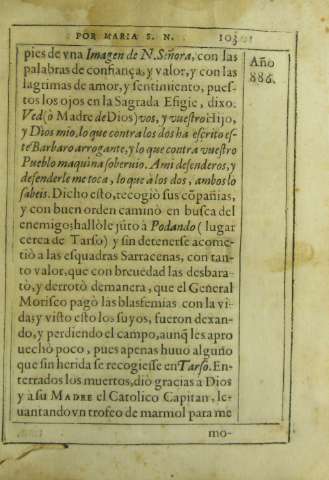 POR MARIA S. N. 103
Año
886.
pies de vna Imagen de N. Señora, con las
palabras de confiança, y valor, y con las
lagrimas de amor, y sentimiento, pues-
tos los ojos en la Sagrada Efigie, dixo:
Ved (ò Madre de Dios) vos, y vuestro Hijo,
y Dios mio, lo que contra los dos ha escrito es-
te Barbaro arrogante, y lo que contra vuestro
Pueblo maquina soberuio. A mi defenderos, y
defenderle me toca, lo que à los dos, ambos lo
sabeis. Dicho esto, recogiò sus cõpañias,
y con buen orden caminò en busca del
enemigo; hallòle jũto à Podando (lugar
cerca de Tarso) y sin detenerse acome-
tiò a las esquadras Sarracenas, con tan-
to valor, que con breuedad las desbara-
tò, y derrotò demanera, que el General
Morisco pagò las blasfemias con la vi-
da; y visto esto los suyos, fueron dexan-
do, y perdiendo el campo, aunq̃ les apro
uechò poco, pues apenas huuo alguno
que sin herida se recogiesse en Tarso. En-
terrados los muertos, diò gracias a Dios
y a su MADRE el Catolico Capitan, le-
uantando vn trofeo de marmol para me
mo-